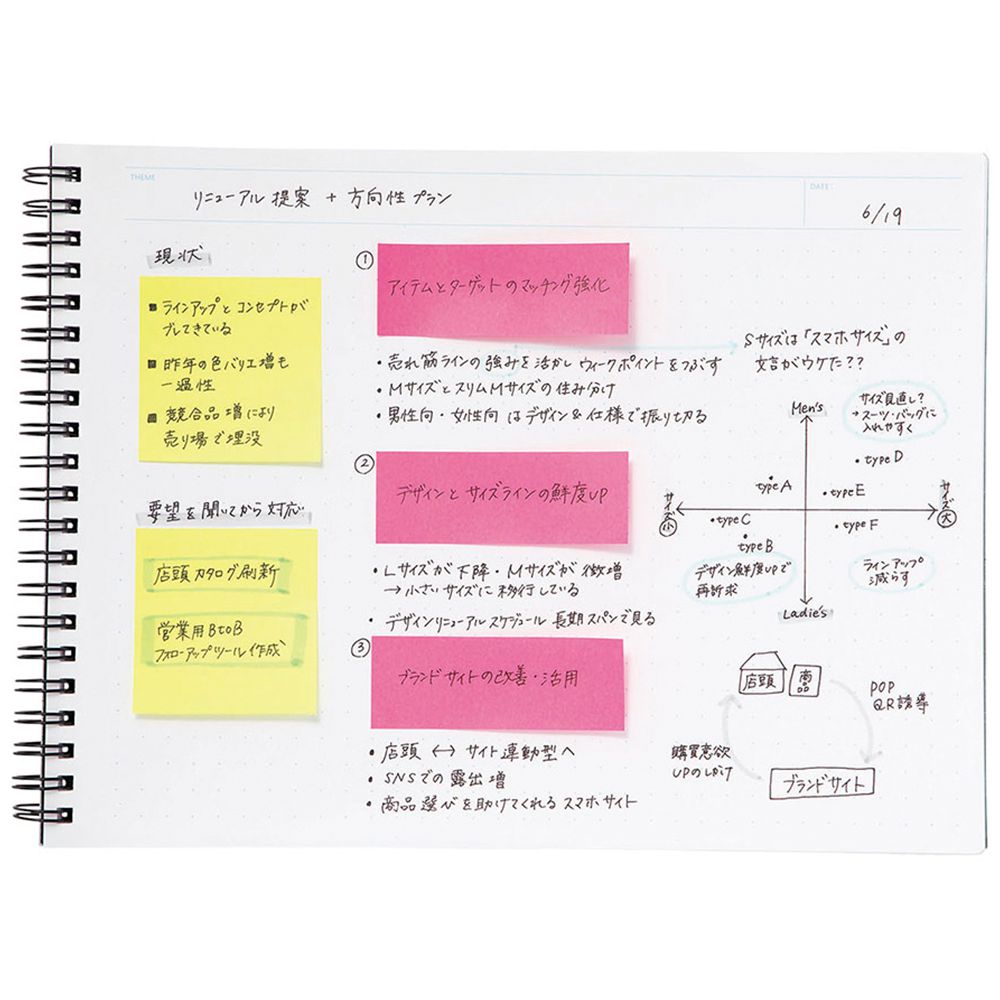 THEME
リニューアル提案 + 方向性プラン
DATE:
6/19
現状
■ ラインアップとコンセプトが
ブレてきている
■ 昨年の色バリエ増も
一過性
■ 競合品増により
売り場で埋没
要望を聞いてから対応
店頭カタログ刷新
営業用BtoB
フォローアップツール作成
① アイテムとターゲットのマッチング強化
・売れ筋ラインの強みを活かしウィークポイントをつぶす
・MサイズとスリムMサイズの住み分け
・男性向・女性向はデザイン&仕様で振り切る
② デザインとサイズラインの鮮度UP
・Lサイズが下降・Mサイズが微増
→ 小さいサイズに移行している
・デザインリニューアルスケジュール長期スパンで見る
③ ブランドサイトの改善・活用
・店頭 ↔ サイト連動型へ
・SNSでの露出増
・商品選びを助けてくれるスマホサイト
Sサイズは「スマホサイズ」の
文言がウケた??
サイズ見直し?
→スーツ・バッグに
入れやすく
Men's
・typeD
typeA
・typeE
サイズ小
サイズ大
・typeC
・typeF
typeB
デザイン鮮度UPで
再訴求
ラインアップ
減らす
Ladie's
店頭
商品
POP
QR誘導
購買意欲
UPのしかけ
ブランドサイト